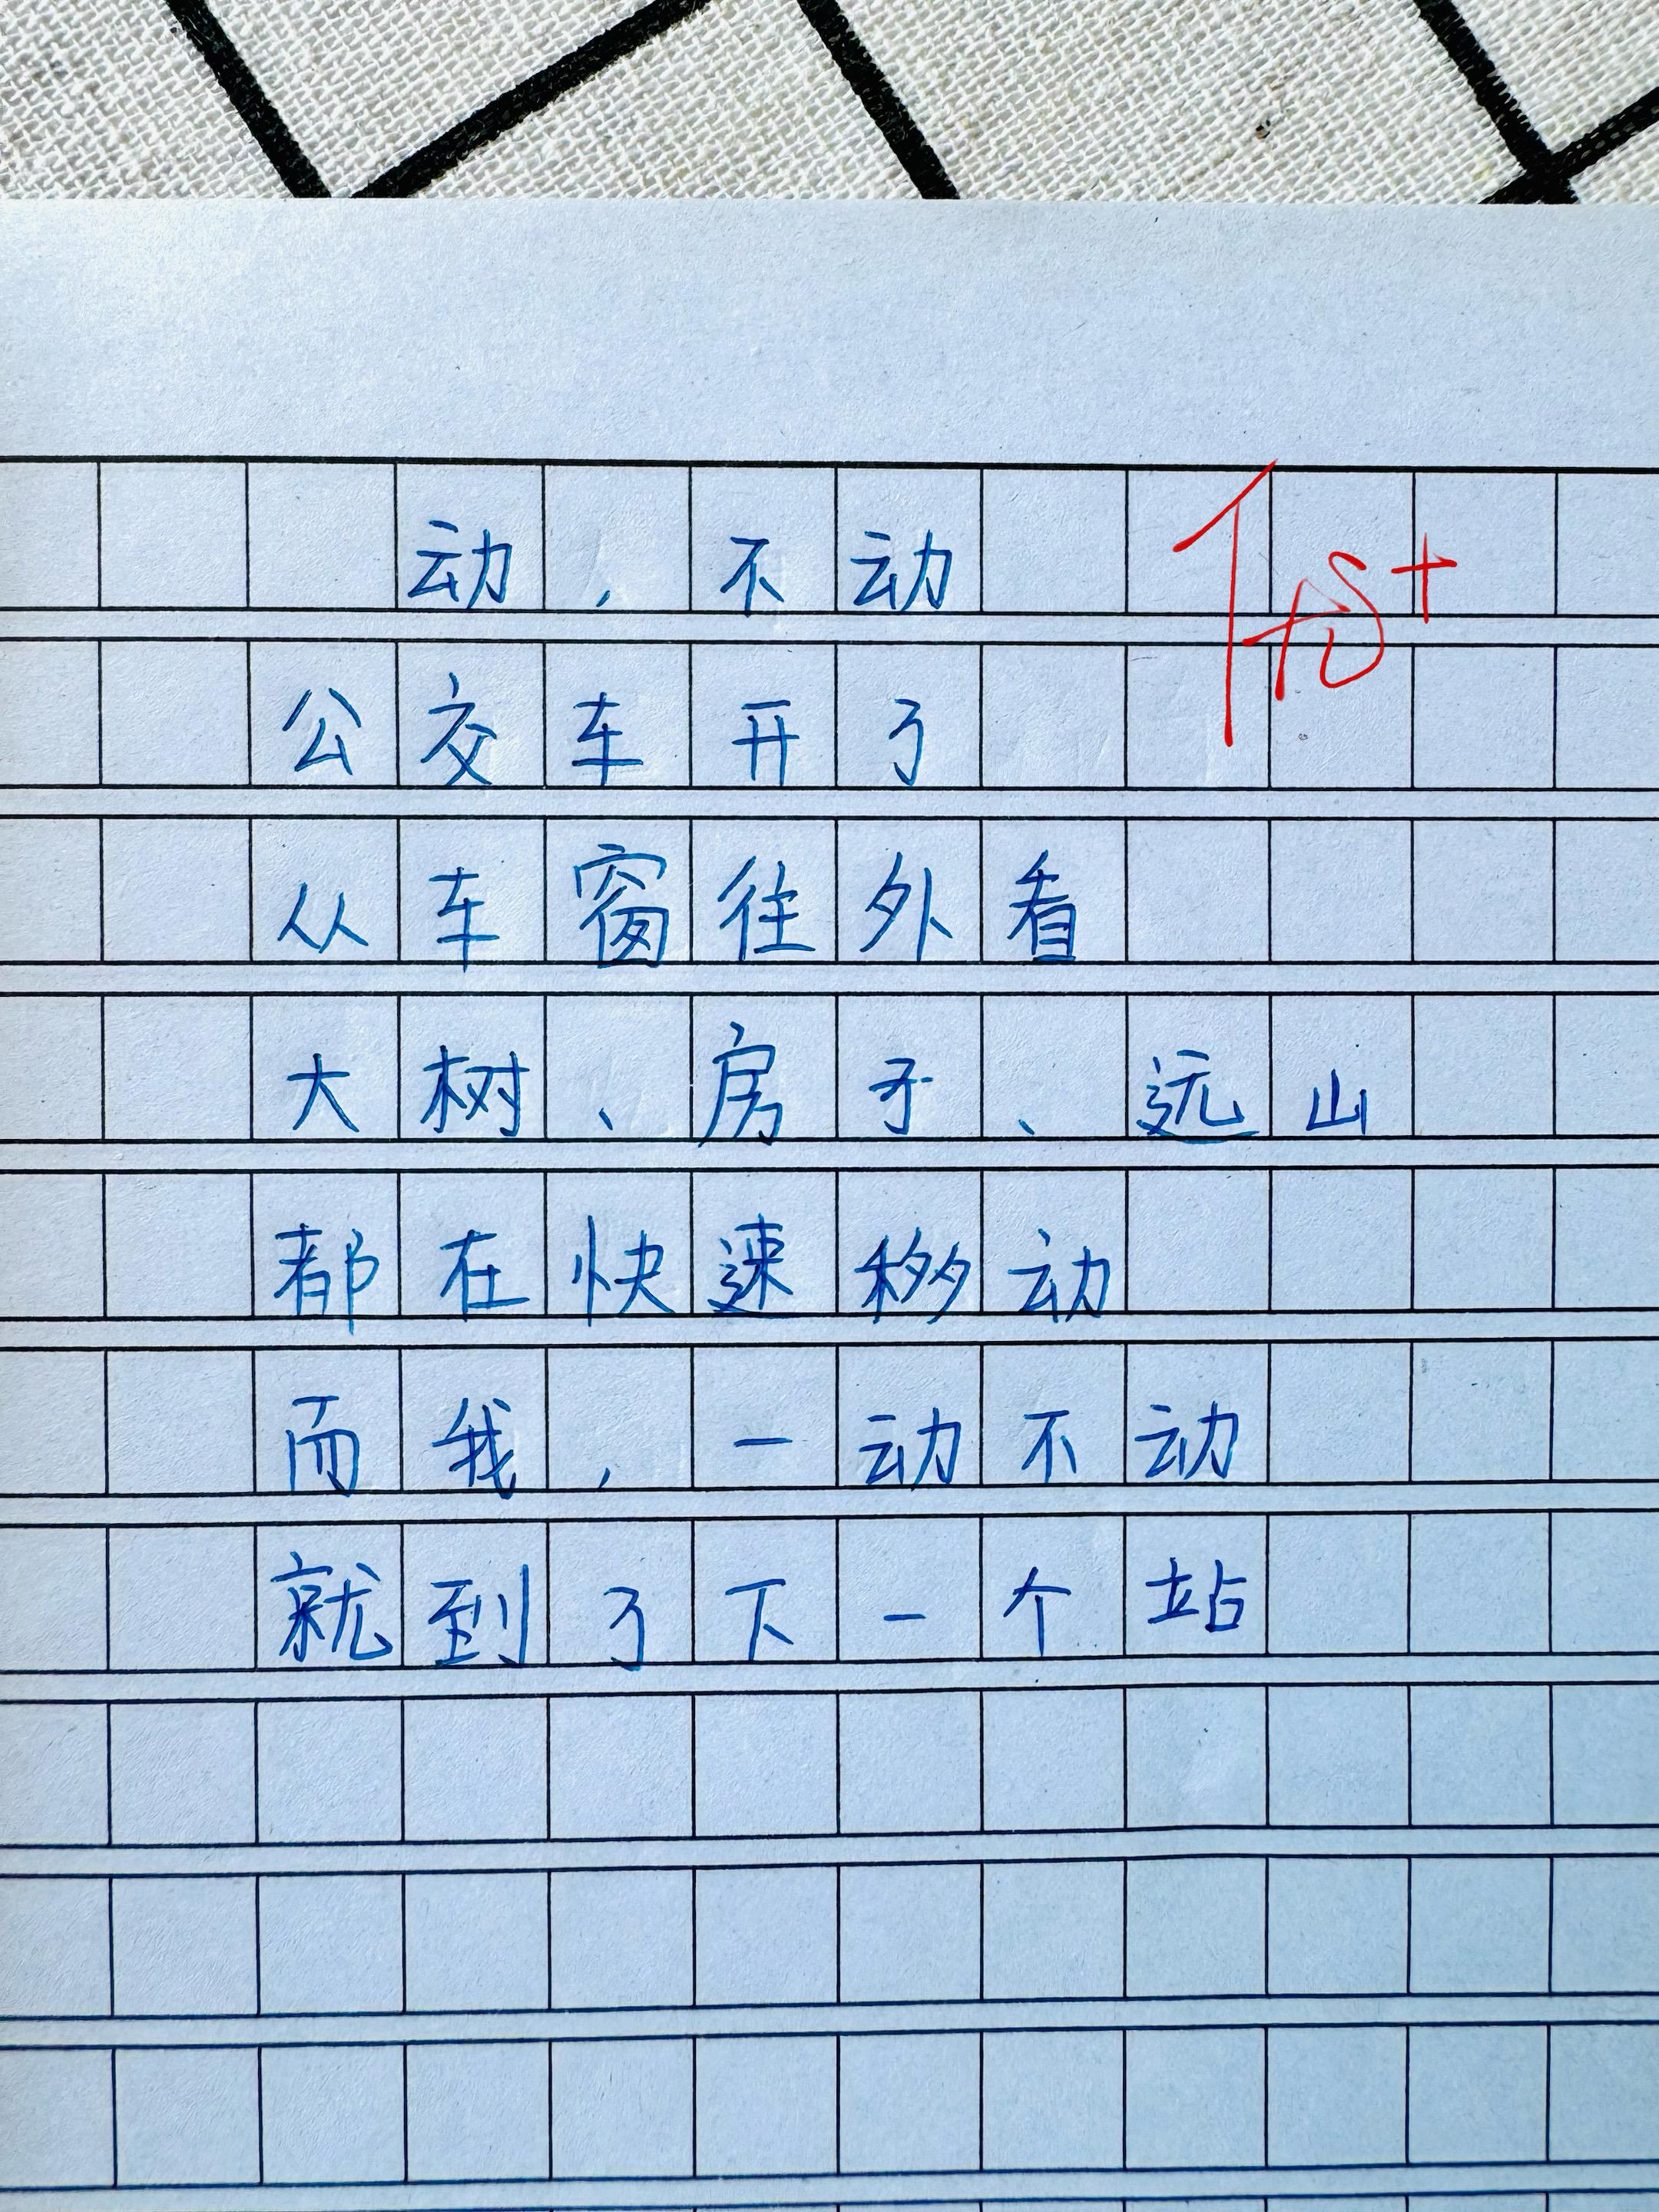 动，不动
公交车开了
从车窗往外看
大树、房子、远山
都在快速移动
而我，一动不动
就到了下一个站